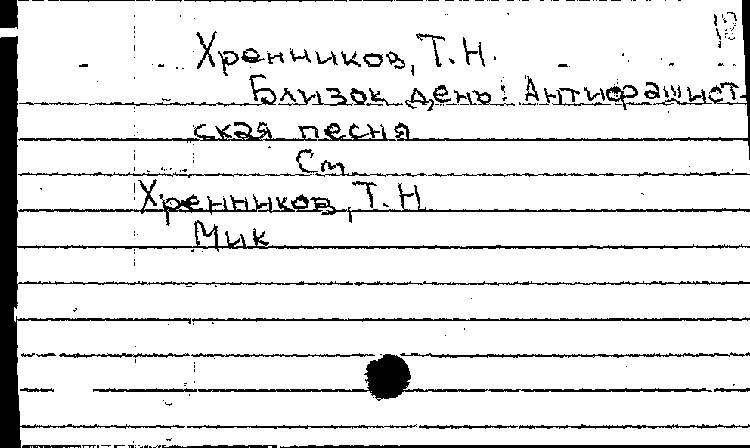 12
Хренников, Т.Н.
Близок день! Антифашист-
ская песня
См.
Хренников, Т.Н
Мик